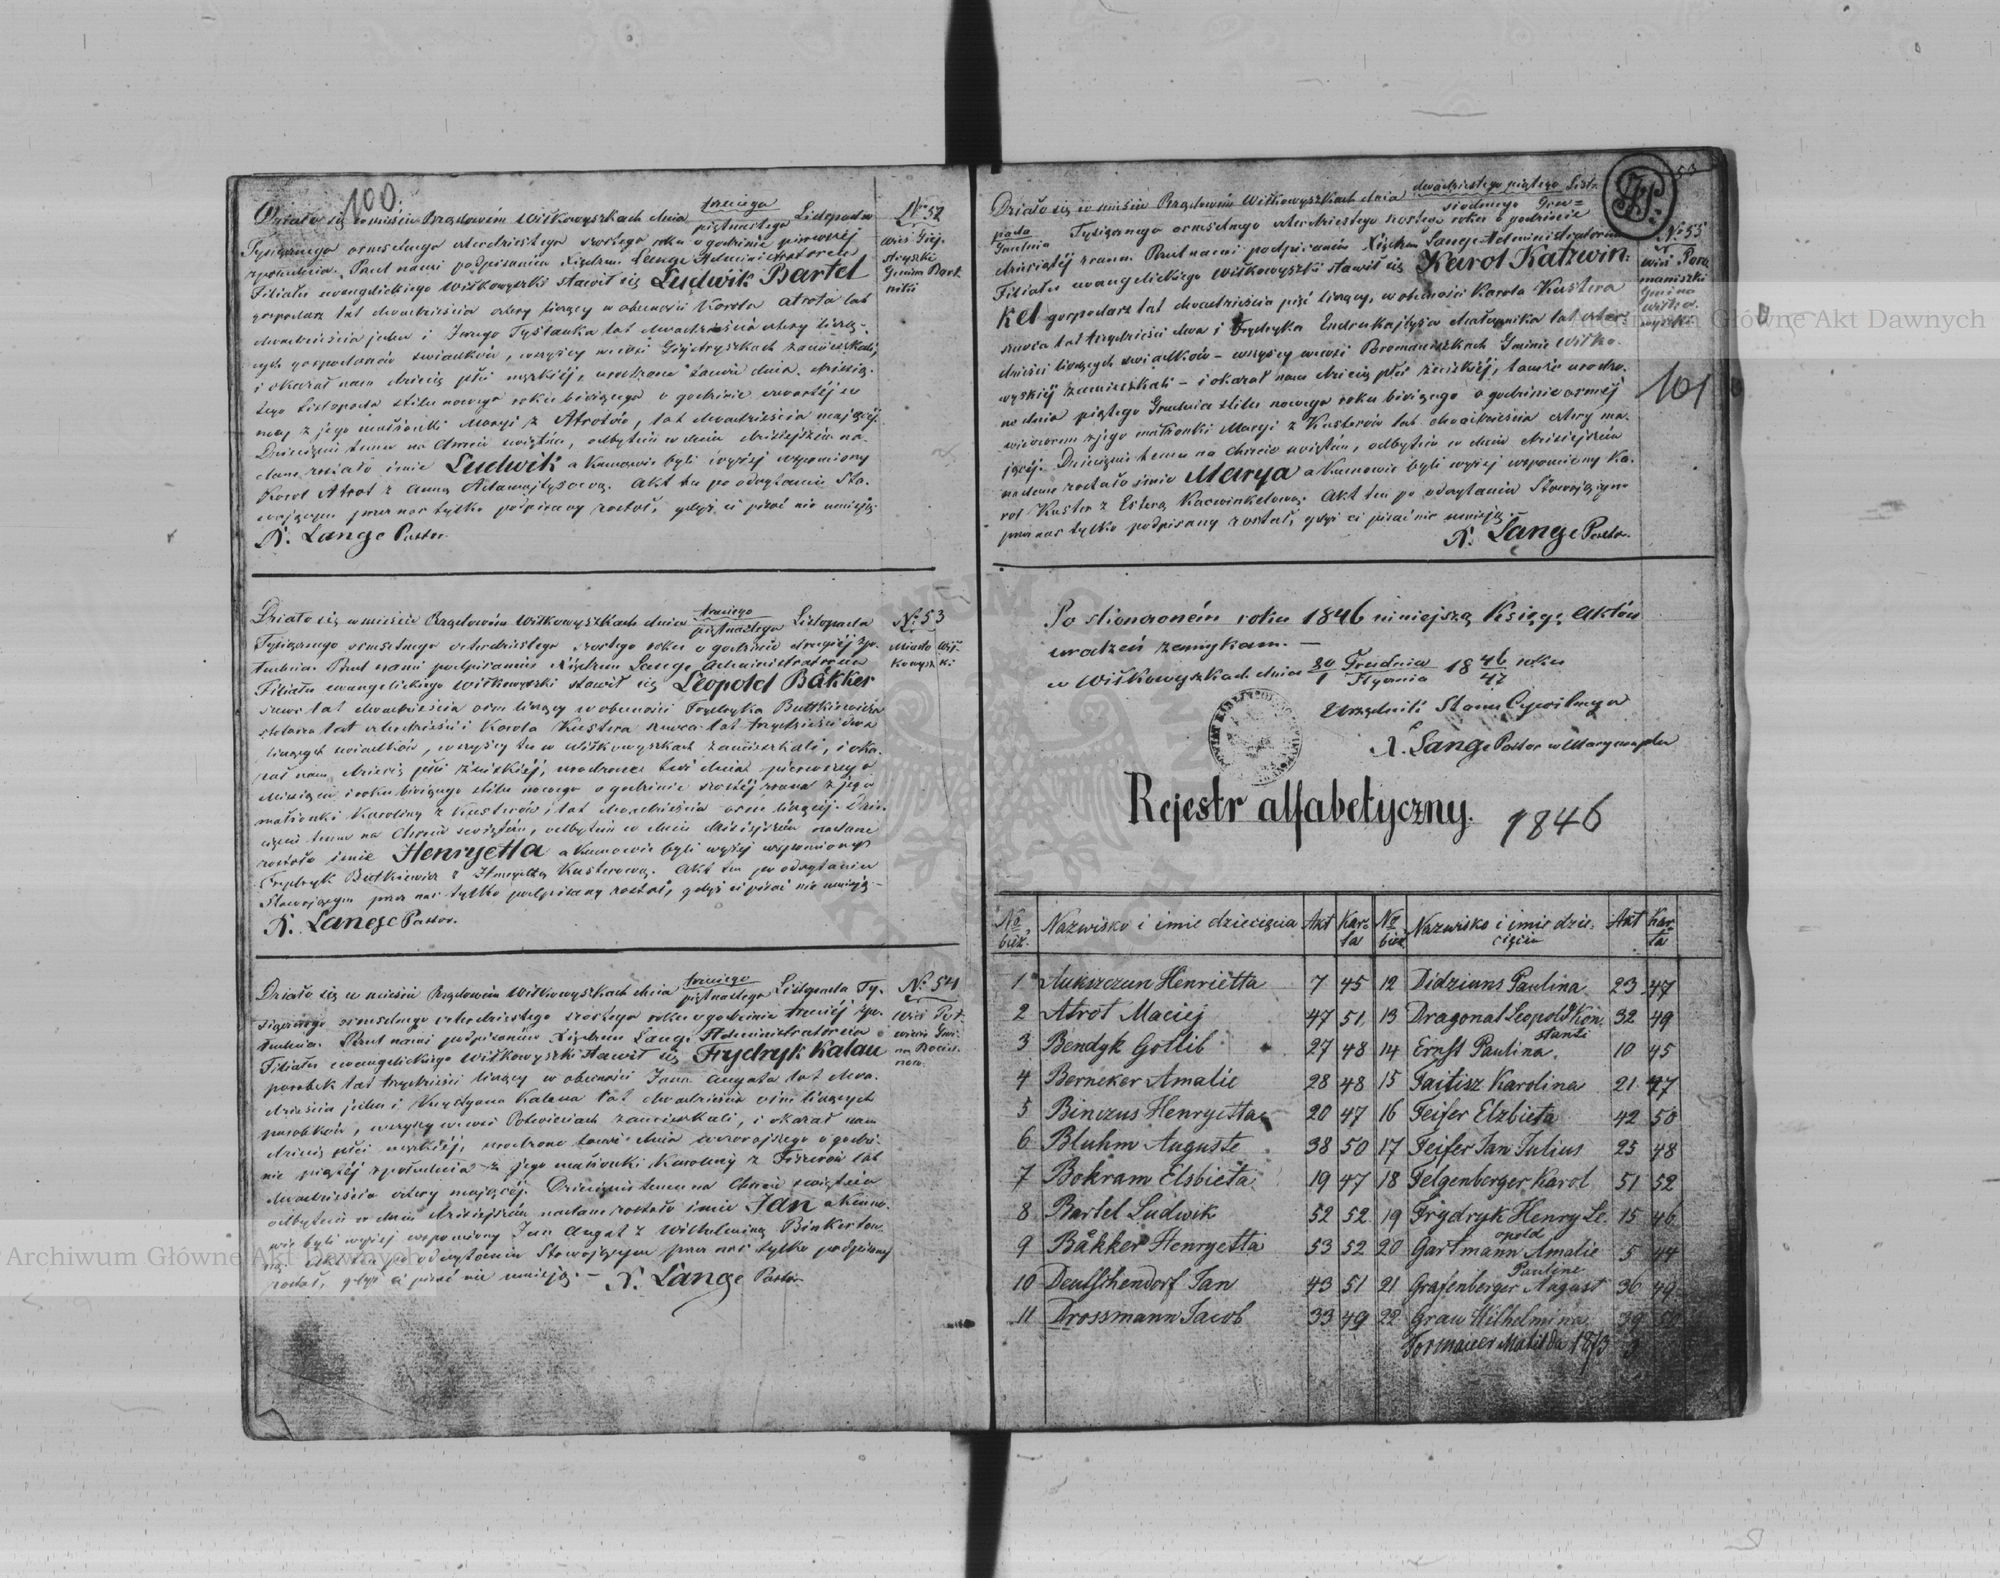 100.
Działo się w mieście Rządowém Wiłkowyszkach dnia trzeciego / piętnastego Listopada
Tysiącznego ośmsetnego czterdziestego szóstego roku o godzinie pierwszéj
zpołudnia. Przed nami podpisaném Xiędzem Lange Administratorem
Filiału ewangelickiego Wiłkowyszki stawił się Ludwik Bartel
gospodarz lat dwadzieścia cztery liczący w obecności Karola Atrota lat
dwadzieścia jeden i Jerzego Tyslauka lat dwadzieścia cztery liczą-
cych gospodarzów świadków, wszyscy we wsi Giżtryszkach zamieszkali,
i okazał nam dziecię płci męzkiéj, urodzone tamże dnia dziesią-
tego Listopada stilu nowego roku bieżącego o godzinie czwartéj w
nocy z jego małżonki Maryi z Atrotów, lat dwadzieścia mającéj.
Dziecięciu temu na Chrzcie świętém, odbytém w dniu dzisiejszém na-
dane zostało imie Ludwik a Kumowie byli wyżéj wspomiony
Karol Atrot z Anną Adamajtysową. Akt ten po odczytaniu Sta-
wającym przez nas tylko podpisany został, gdyż ci pisać nie umieją.
X. Lange Pastor.
No 52
Wieś Giż-
tryszki
Gmina Bart-
niki
Działo się w mieście Rządowém Wiłkowyszkach dnia trzeciego / piętnastego Listopada
Tysiącznego ośmsetnego czterdziestego szóstego roku o godzinie drugiéj zpo-
łudnia. Przed nami podpisaném Xiędzem Lange Administratorem
Filiału ewangelickiego Wiłkowyszki stawił się Leopold Bäkker
szewc lat dwadzieścia ośm liczący w obecności Frydryka Buttkiewicza
stolarza lat czterdzieści i Karola Kustera szewca lat trzydzieści dwa
liczących świadków, wszyscy tu w Wiłkowyszkach zamieszkali, i oka-
zał nam dziecię płci żeńskiéj, urodzone tu dnia pierwszego
Miesiąca i roku bieżącego stilu nowego o godzinie szóstéj zrana z jego
małżonki Karoliny z Kusterów, lat dwadzieścia ośm liczącéj. Dzie-
cięciu temu na Chrzcie świętém, odbytém w dniu dzisiejszém nadane
zostało imie Henryetta a Kumowie byli wyżéj wspomiony
Frydryk Butkiewicz z Henryettą Kusterową. Akt ten po odczytaniu
Stawającym przez nas tylko podpisany został, gdyż ci pisać nie umieją.
X. Lange Pastor.
No 53
Miasto Wił-
kowyszki
Działo się w mieście Rządowém Wiłkowyszkach dnia trzeciego / piętnastego Listopada Ty-
siącznego ośmsetnego czterdziestego szóstego roku o godzinie trzeciéj zpo-
łudnia. Przed nami podpisaném Xiędzem Lange Administratorem
Filiału ewangelickiego Wiłkowyszki stawił się Frydryk Kalau
parobek lat trzydzieści liczący w obecności Jana Augata lat dwa-
dzieścia jeden i Krystyana Kalaua lat dwadzieścia ośm liczących
parobków, wszyscy we wsi zamieszkali, i okazał nam
dziecię płci męzkiéj, urodzone tamże dnia wczorajszego o godzi-
nie piątéj zpołudnia z jego małżonki Karoliny z Fiszerów lat
dwadzieścia cztery mającéj. Dziecięciu temu na Chrzcie świętém
odbytém w dniu dzisiejszém nadane zostało imie Jan a Kumo-
wie byli wyżéj wspomiony Jan Augat z Wilhelminą Binkertow-
ną. Akt ten po odczytaniu Stawającym przez nas tylko podpisany
został, gdyż ci pisać nie umieją. – X. Lange Pastor.
No 54
Działo się w mieście Rządowém Wiłkowyszkach dnia dwudziestego piątego Listo-
pada / siódmego Gru-
dnia Tysiącznego ośmsetnego czterdziestego szóstego roku o godzinie
dziesiątéj zrana. Przed nami podpisaném Xiędzem Lange Administratorem
Filiału ewangelickiego Wiłkowyszki stawił się Karol Katzwin-
kel gospodarz lat dwadzieścia pięć liczący, w obecności Karola Kustera
szewca lat trzydzieści dwa i Frydryka Endrukajtysa chałupnika lat czter-
dzieści liczących świadków – wszyscy we wsi Poromaniszkach Gminie Wiłko-
wyskiéj zamieszkali – i okazał nam dziecię płci żeńskiéj, tamże urodzo-
ne dnia piątego Grudnia stilu nowego roku bieżącego o godzinie ósméj
wieczorem z jego małżonki Maryi z Kusterów lat dwadzieścia cztery ma-
jącéj. Dziecięciu temu na Chrzcie świętém, odbytém w dniu dzisiejszém
nadane zostało imie Marya a Kumowie byli wyżéj wspomiony Ka-
rol Kuster z Esterą Kacwinkelową. Akt ten po odczytaniu Stawającym
przez nas tylko podpisany został, gdyż ci pisać nie umieją.
X. Lange Pastor.
53
No 55
Wieś Poro-
maniszki
Gmina
Wiłko-
wyszki
101
Po skończoném roku 1846 niniejszą Księgę Aktów
urodzeń zamykam. –
w Wiłkowyszkach dnia 20/1 Grudnia/Stycznia 18 46/47 roku
Urzędnik Stanu Cywilnego
X. Lange Pastor w Maryampolu
Rejestr alfabetyczny. 1846
No bież. Nazwisko i imie dziecięcia Akt Kar-ta No bież Nazwisko i imie dzie-cięcia Akt Kar-ta
1 Aukszczun Henrietta 7 45 12 Didziuns Paulina 23 47
2 Atrot Maciej 47 51 13 Dragonat Leopold Kon-stanti 32 49
3 Bendyk Gotlib 27 48 14 Ernst Paulina. 10 45
4 Berneker Amalie 28 48 15 Faitisz Karolina 21 47
5 Binczus Henryetta 20 47 16 Feifer Elzbieta 42 50
6 Bluhm Auguste 38 50 17 Feifer Jan Julius 25 48
7 Bokram Elsbieta 19 47 18 Felgenberger Karol 51 52
8 Bartel Ludwik 52 52 19 Frydryk Henry Le-opold 15 46
9 Bäkker Henryetta 53 52 20 Gartmann Amalie Pauline 5 44
10 Deutschendorf Jan 43 51 21 Grafenberger August 36 49
11 Drossmann Jacob 33 49 22 Grau Wilhelmina 39 50
Formaicer Matilda 1873 9
Archiwum Główne Akt Dawnych
Archiwum Główne Akt Dawnych